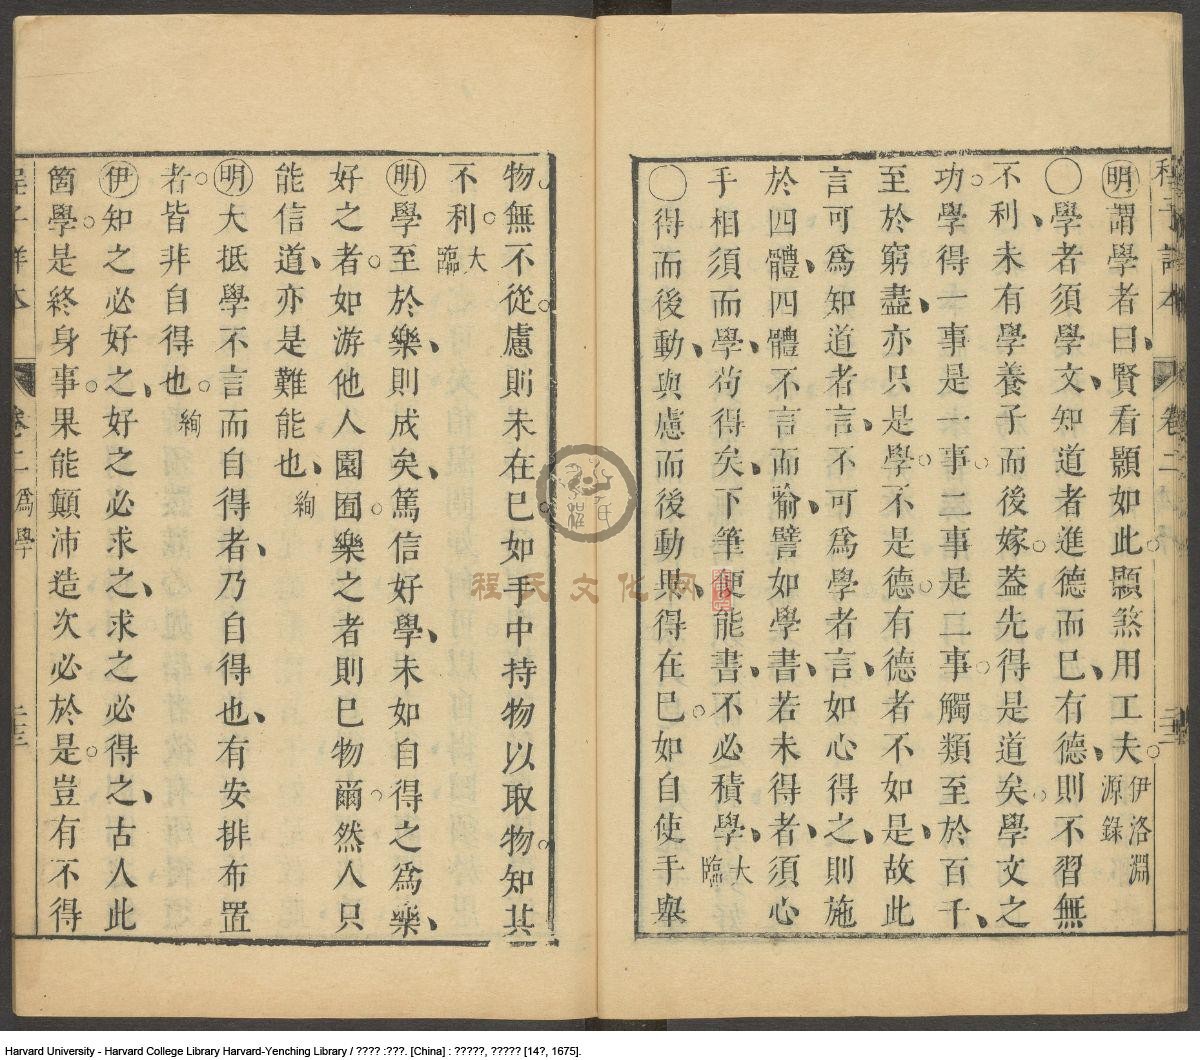 程子詳本
卷二
明謂學者曰賢看顥如此顥煞用工夫伊洛淵源錄
○學者須學文知道者進德而已有德則不習無
不利未有學養子而後嫁蓋先得是道矣學文之
功學得一事是一事二事是二事觸類至於百千
至於窮盡亦只是學不是德有德者不如是故此
言可爲知道者言不可爲學者言如心得之則施
於四體四體不言而喻譬如學書若未得者須心
手相須而學苟得矣下筆便能書不必積學大臨
○得而後動與慮而後動異得在已如自使手舉
物無不從慮則未在已如手中持物以取物知其
不利大臨
明學至於樂則成矣篤信好學未如自得之爲樂
好之者如游他人園囿樂之者則已物爾然人只
能信道亦是難能也絢
明大抵學不言而自得者乃自得也有安排布置
者皆非自得也絢
伊知之必好之好之必求之求之必得之古人此
箇學是終身事果能顛沛造次必於是豈有不得
程子詳本
卷二 爲學
二三
程氏文化网
Harvard University - Harvard College Library Harvard-Yenching Library / ???? :???. [China] : ?????, ????? [14?, 1675].